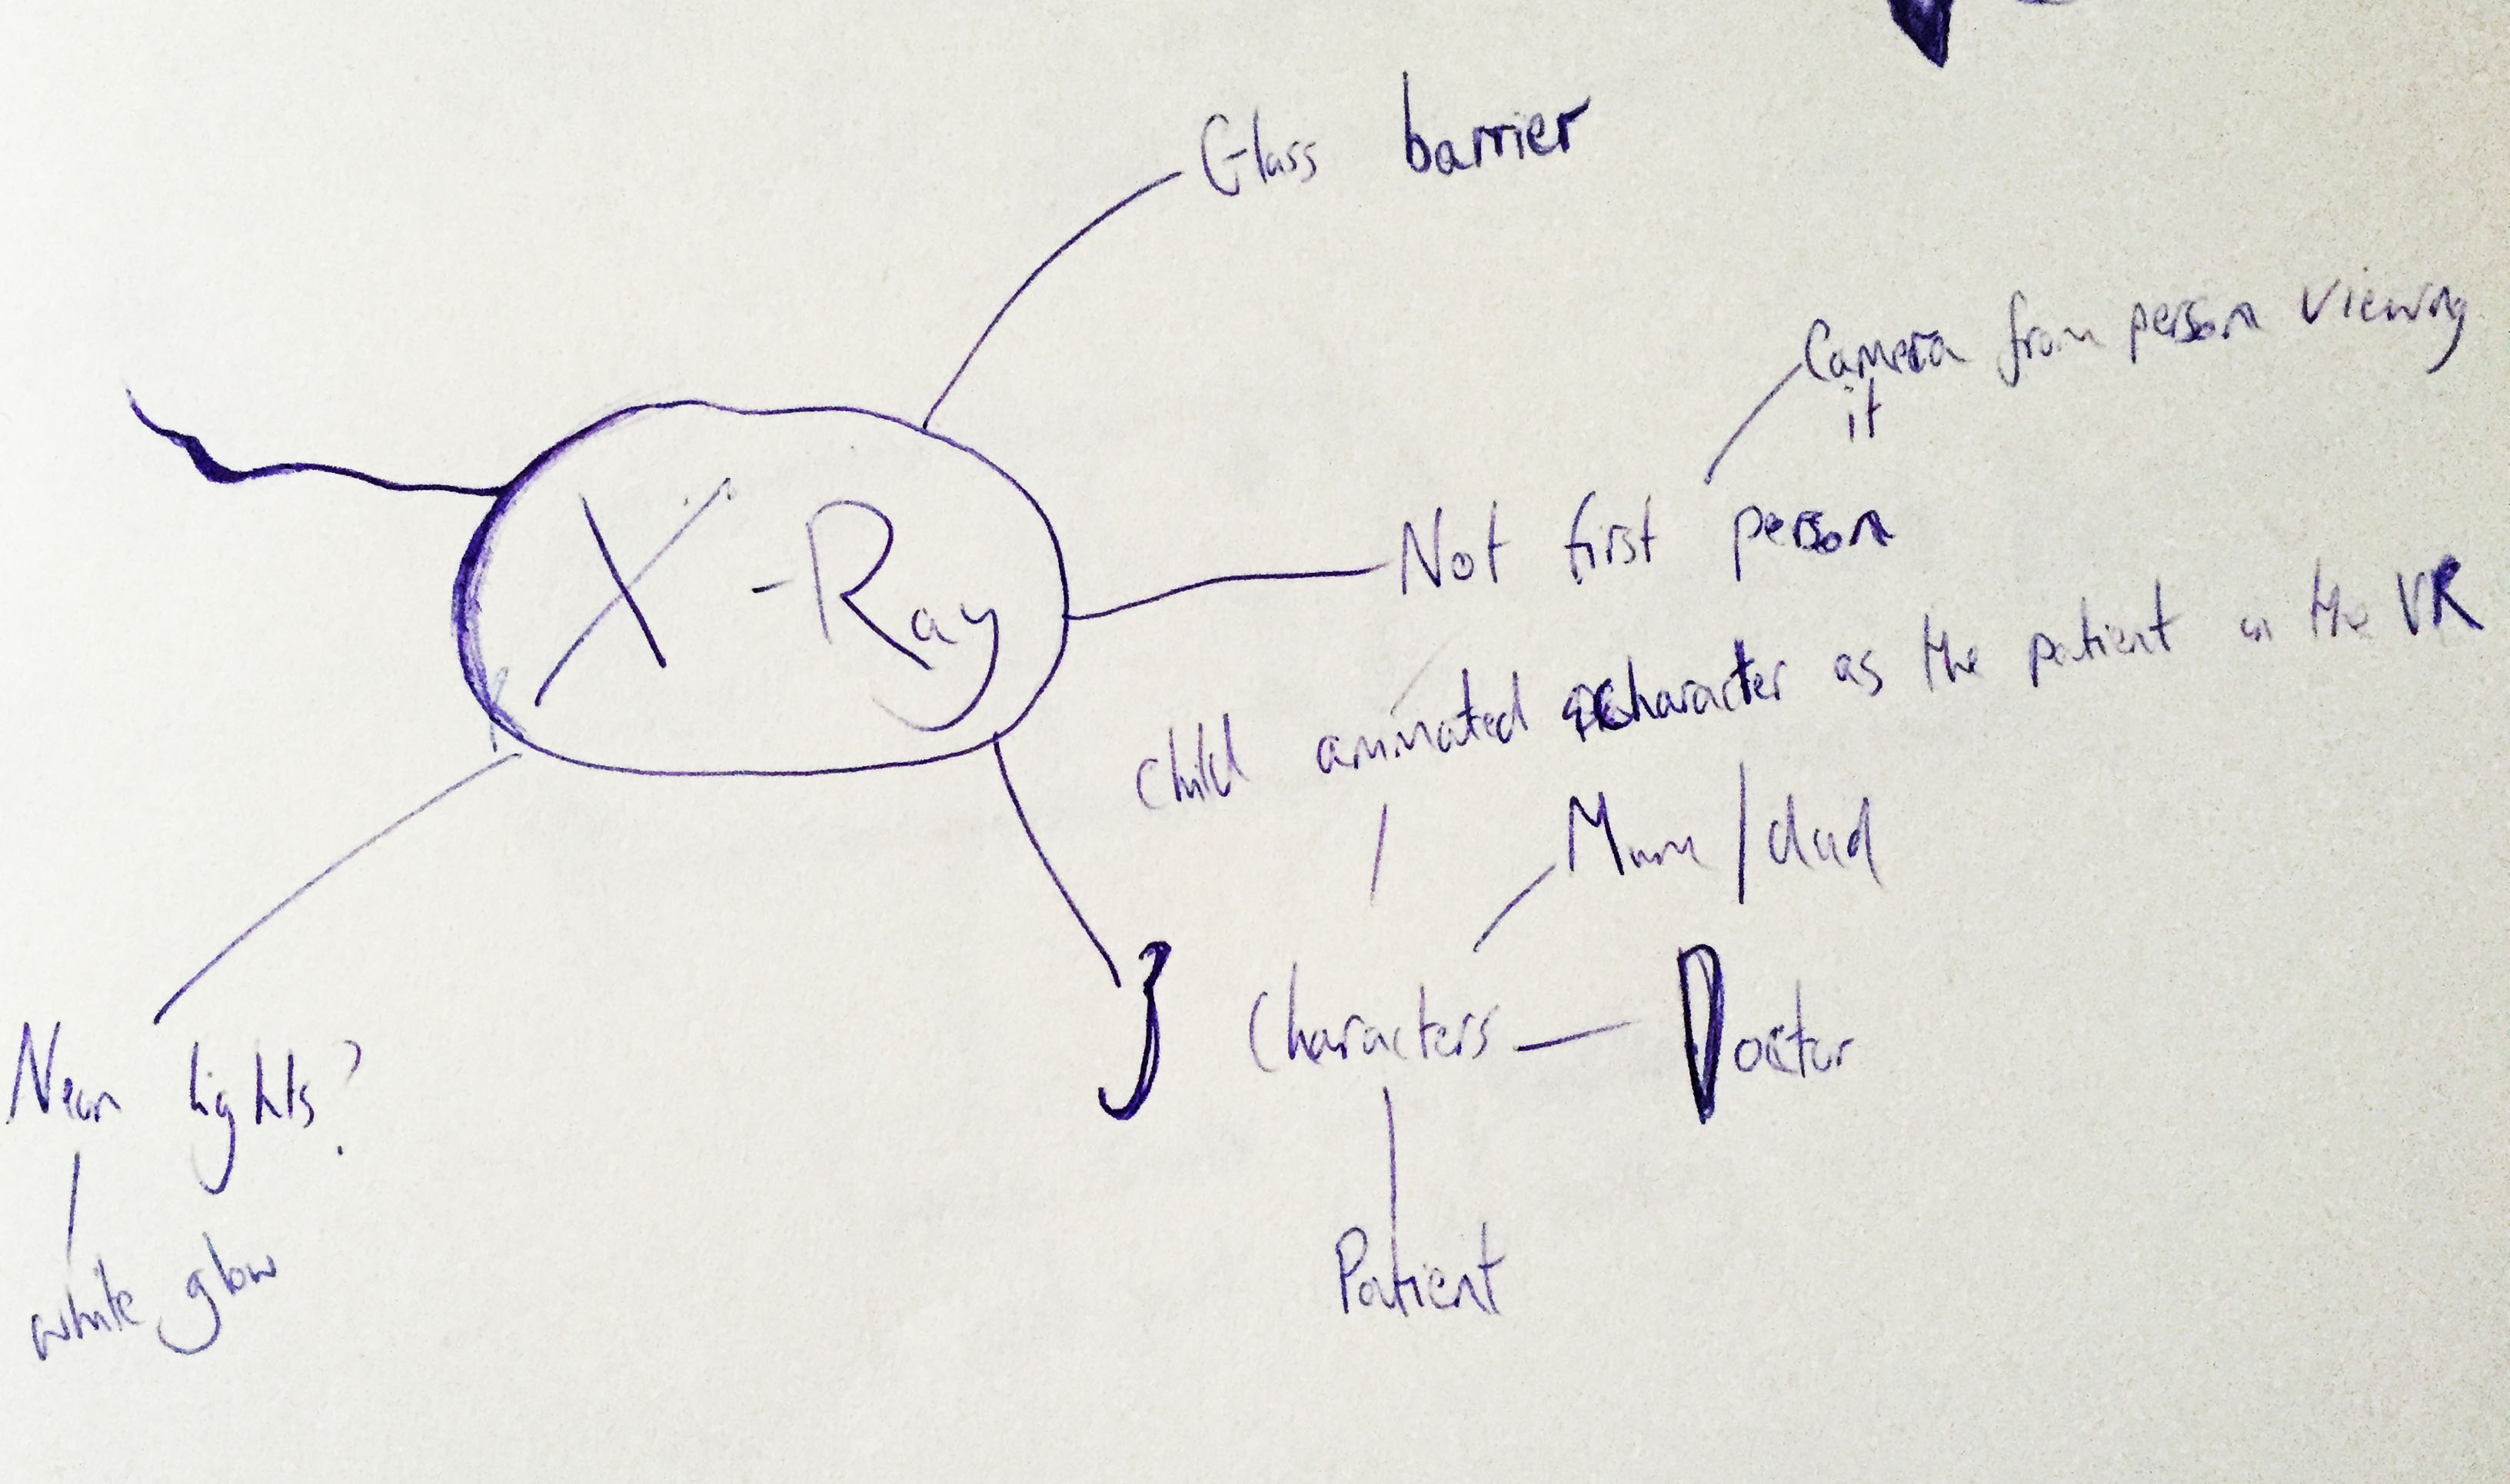 Glass barrier
Camera from person viewing
it
X-Ray
Not first person
Child animated character as the patient in the VR
Mum/dad
3 Characters
Doctor
Neon lights?
Patient
white glow